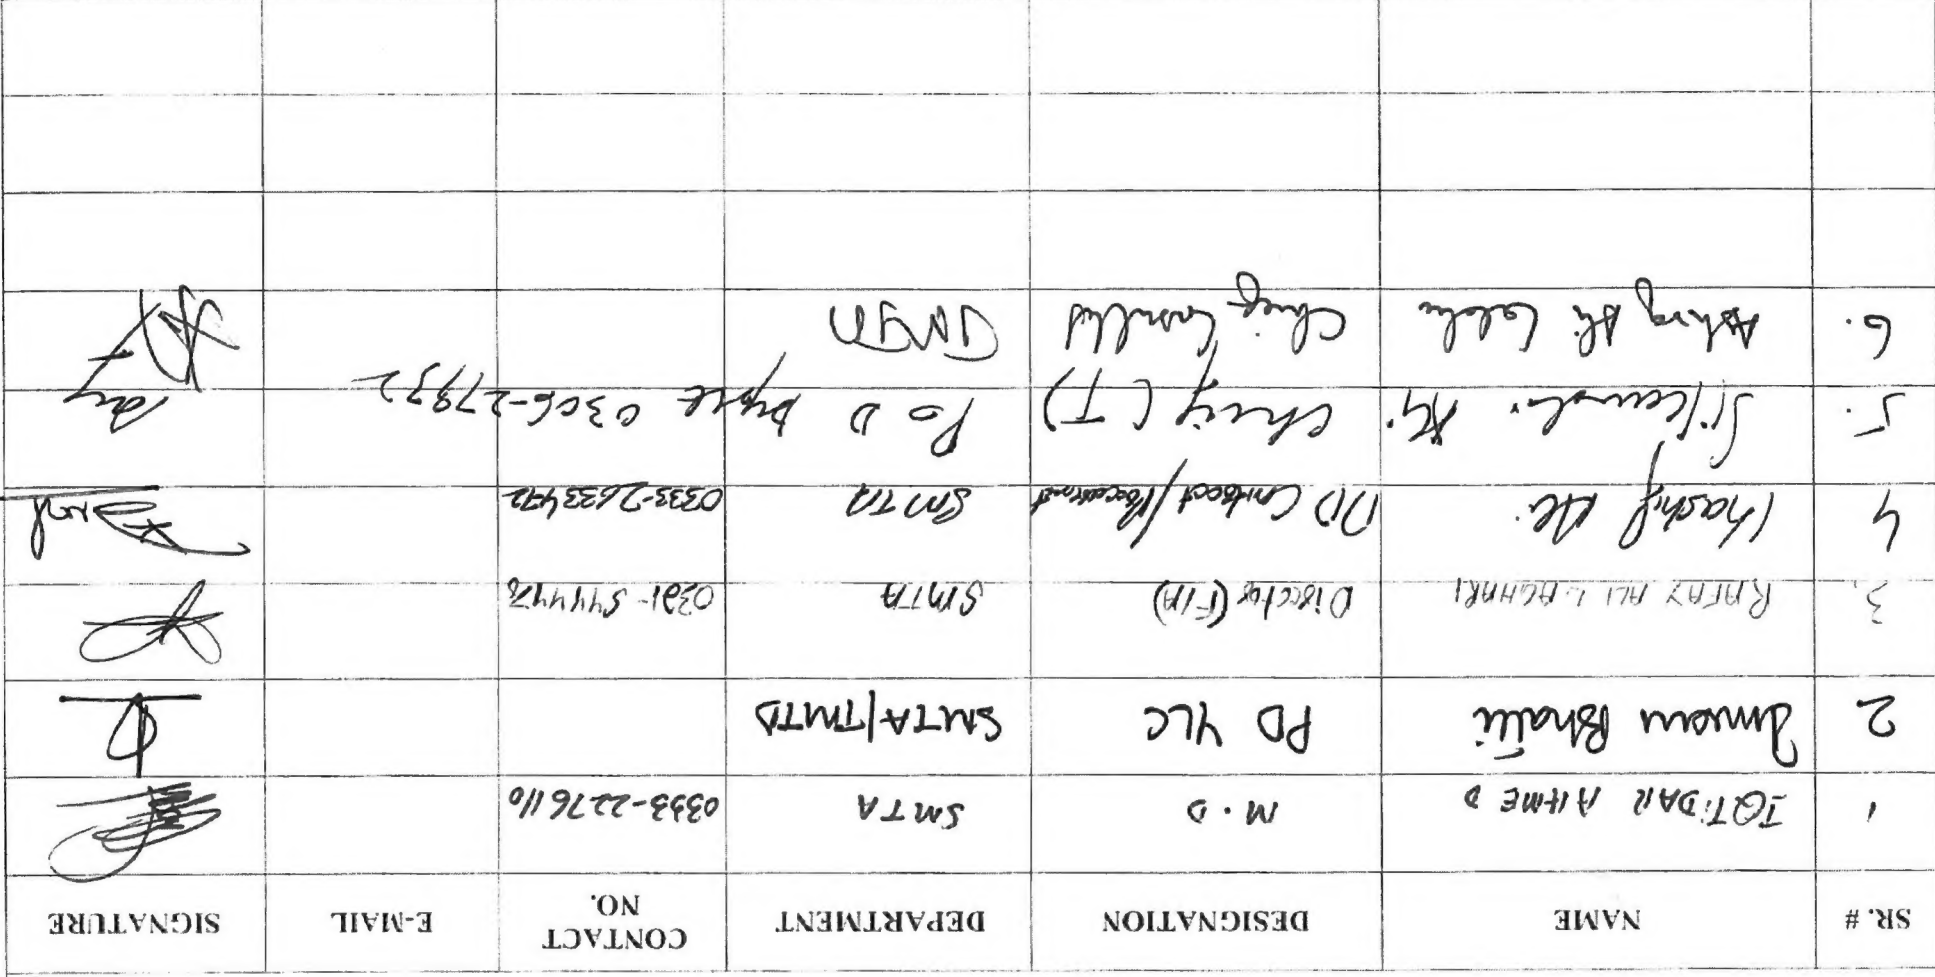 SR. # NAME DESIGNATION DEPARTMENT CONTACT NO. E-MAIL SIGNATURE
1 IQTIDAR AHMED M.D SMTA 0333-2276110
2 Imran Bhatti PD YLC SMTA/TMTD
3. RAFAZ ALI LAGHARI Director (F/A) SMTA 0321-5444478
4 Kashif Ali. DD Contract/Procurement SMTA 0333-2633472
5. Ali. Chief (T) P o D 0306-27932
6. Ali Chief